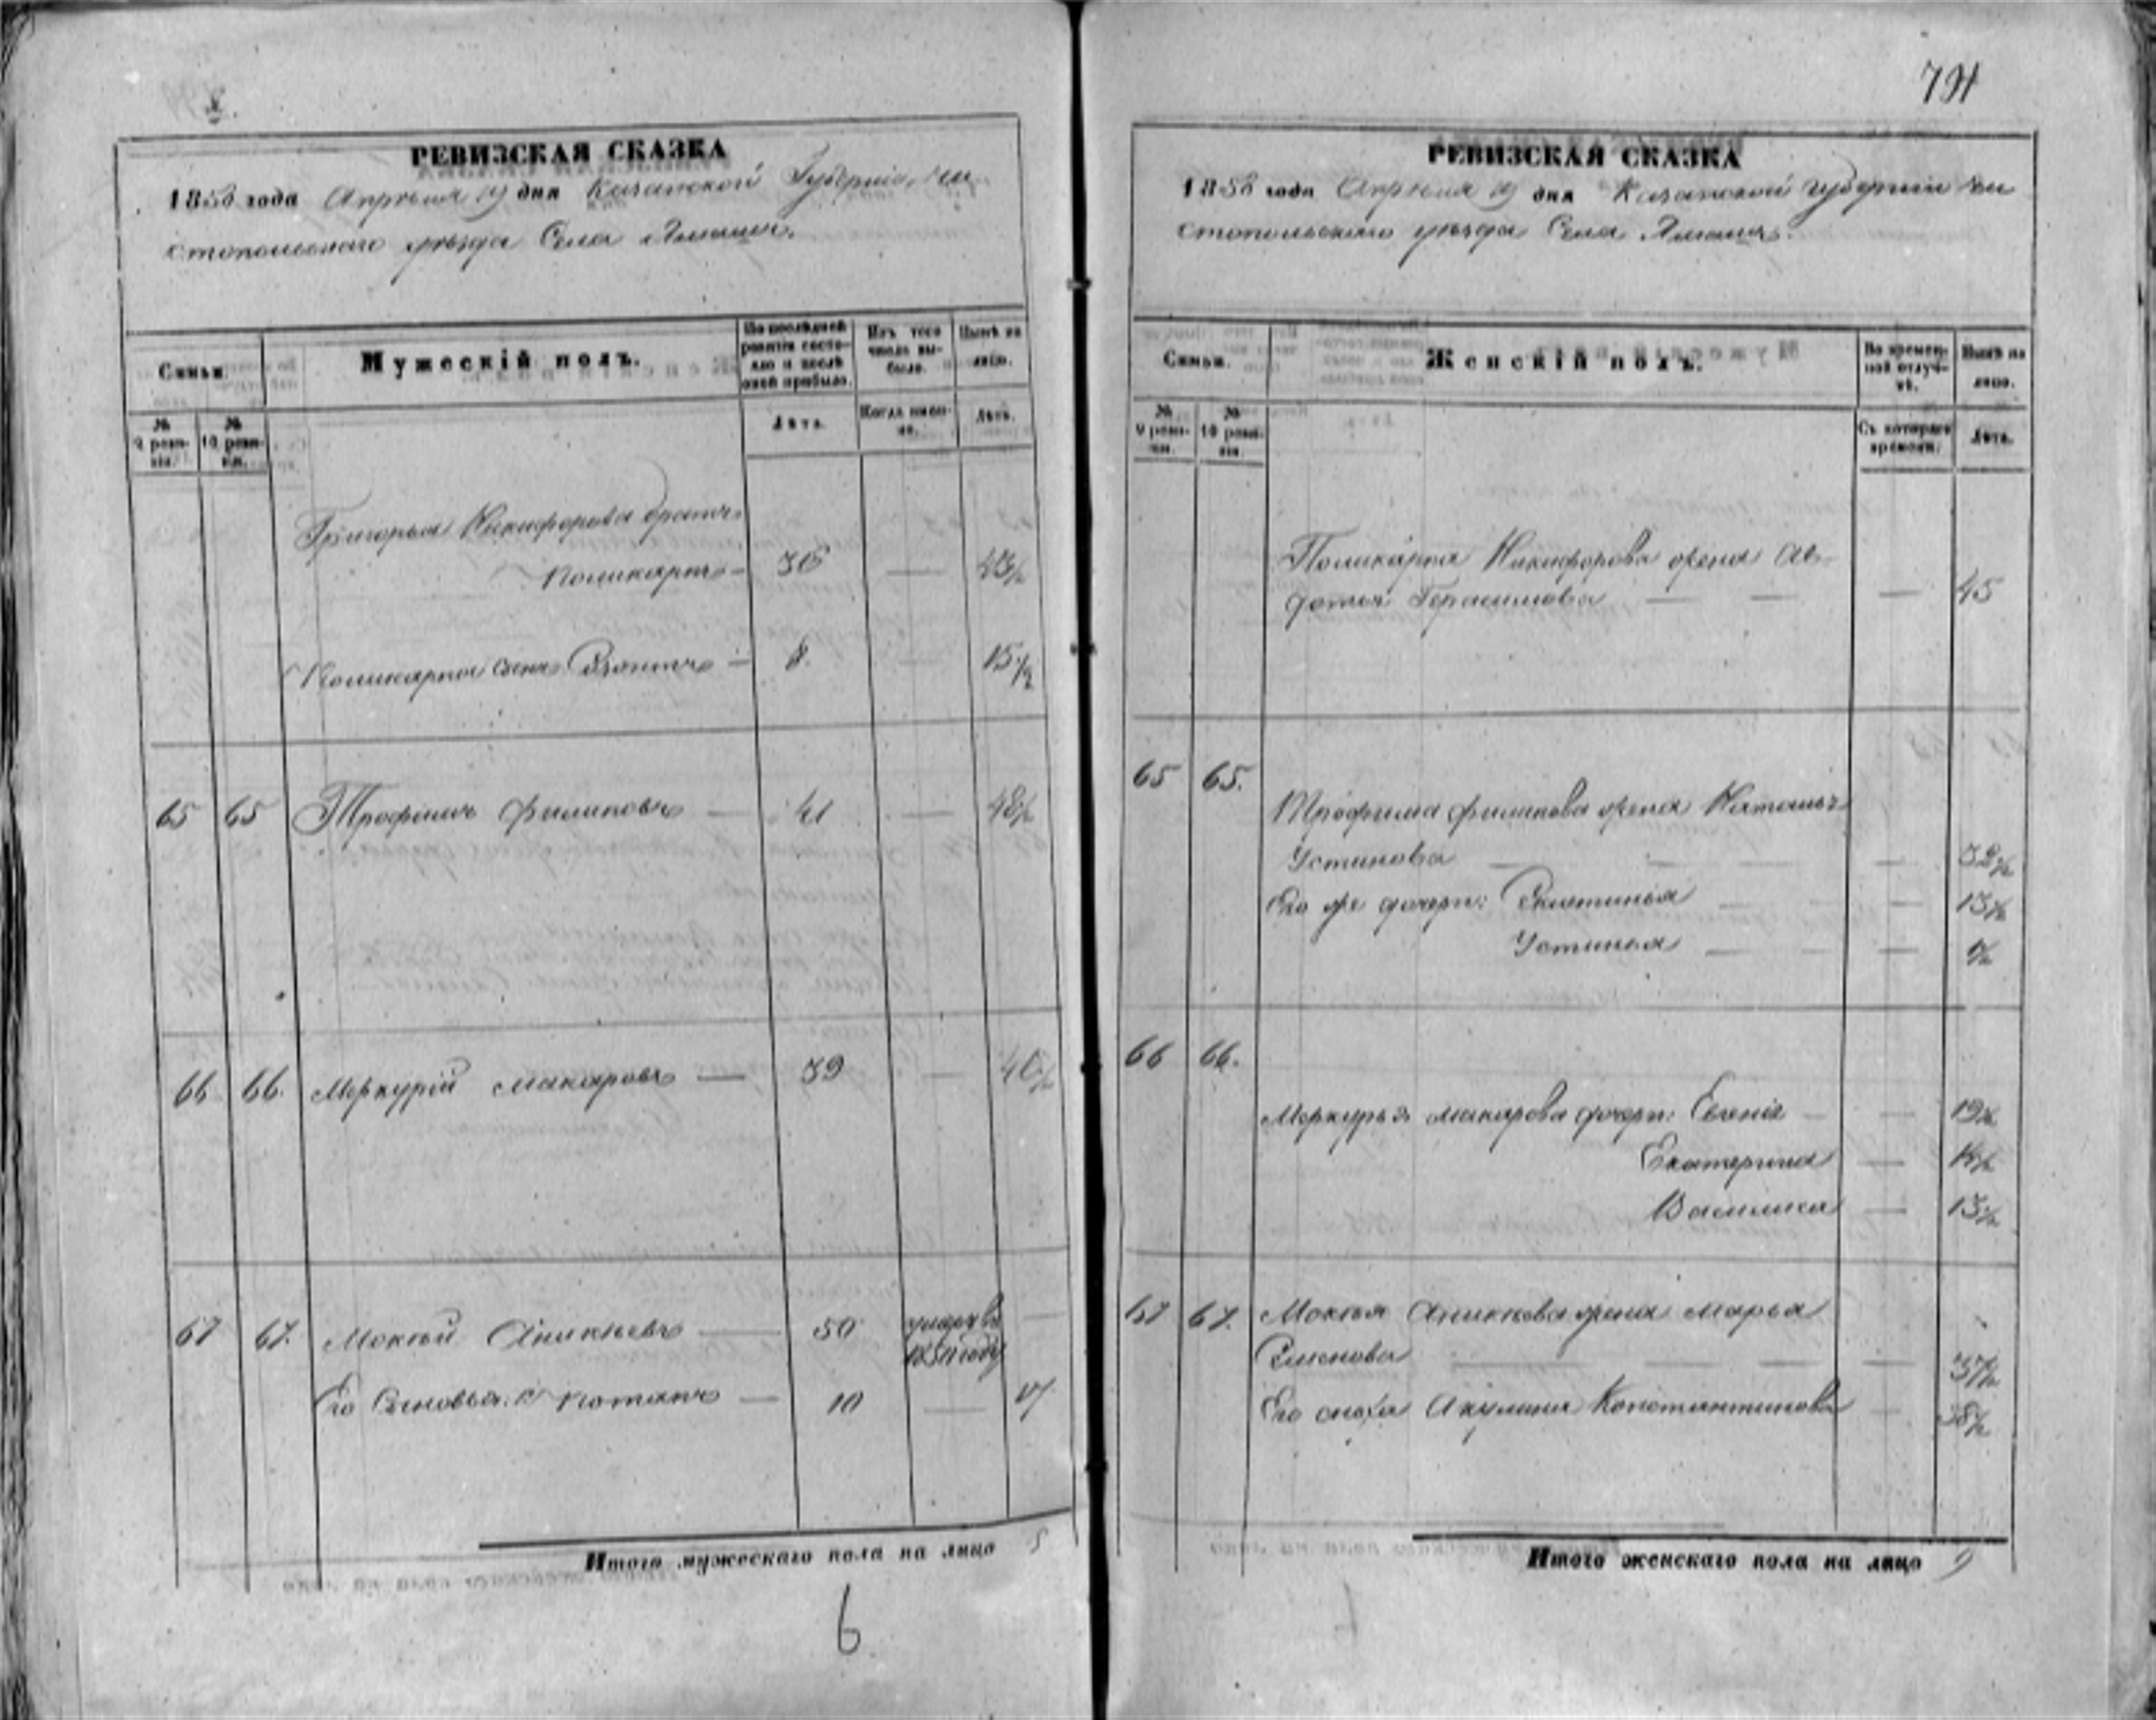 794
РЕВИЗСКАЯ СКАЗКА
1858 года Апреля 19 дня Казанской Губернiи, Чи
стопольскаго уѣзда Села
Семьи.
Мужескій полъ.
По послѣдней ревизіи состояло и послѣ оной прибыло.
Изъ того числа выбыло.
Нынѣ на лицо.
№ 9 ревизіи.
№ 10 ревизіи.
Лѣта.
Когда именно.
Лѣта.
Григорья Никифорова братъ
Поликарпъ — 36 — 43½
Поликарпа сынъ — 8. — 15½
65 65 Трофимъ Филиповъ — 41 — 48½
66 66. Меркурій Макаровъ — 39 — 46½
67 67. Мокѣй Аникѣевъ — 50 умеръ въ —
году
Его Сыновья: 1) Потапъ — 10 — 17
Итого мужескаго пола на лицо 5
6
РЕВИЗСКАЯ СКАЗКА
1858 года Апреля 19 дня Казанской губернiи Чи
стопольскаго уѣзда Села
Семьи.
Женскій полъ.
Во временной отлучкѣ.
Нынѣ на лицо.
№ 9 ревизіи.
№ 10 ревизіи.
Съ котораго времени.
Лѣта.
Поликарпа Никифорова жена Ав
дотья Герасимова — — — 45
65 65.
Трофима Филипова жена Наталья
Устинова — — — 32½
Его же дочери: — — 13½
Устинья — —
66 66.
Меркурья Макарова дочери: Евгенія — — 19½
Екатерина —
Василиса — 13½
67 67. Мокѣя Аникѣева жена Марья
Семенова — — — 57½
Его сноха Акулина Константинова — 38½
Итого женскаго пола на лицо 9